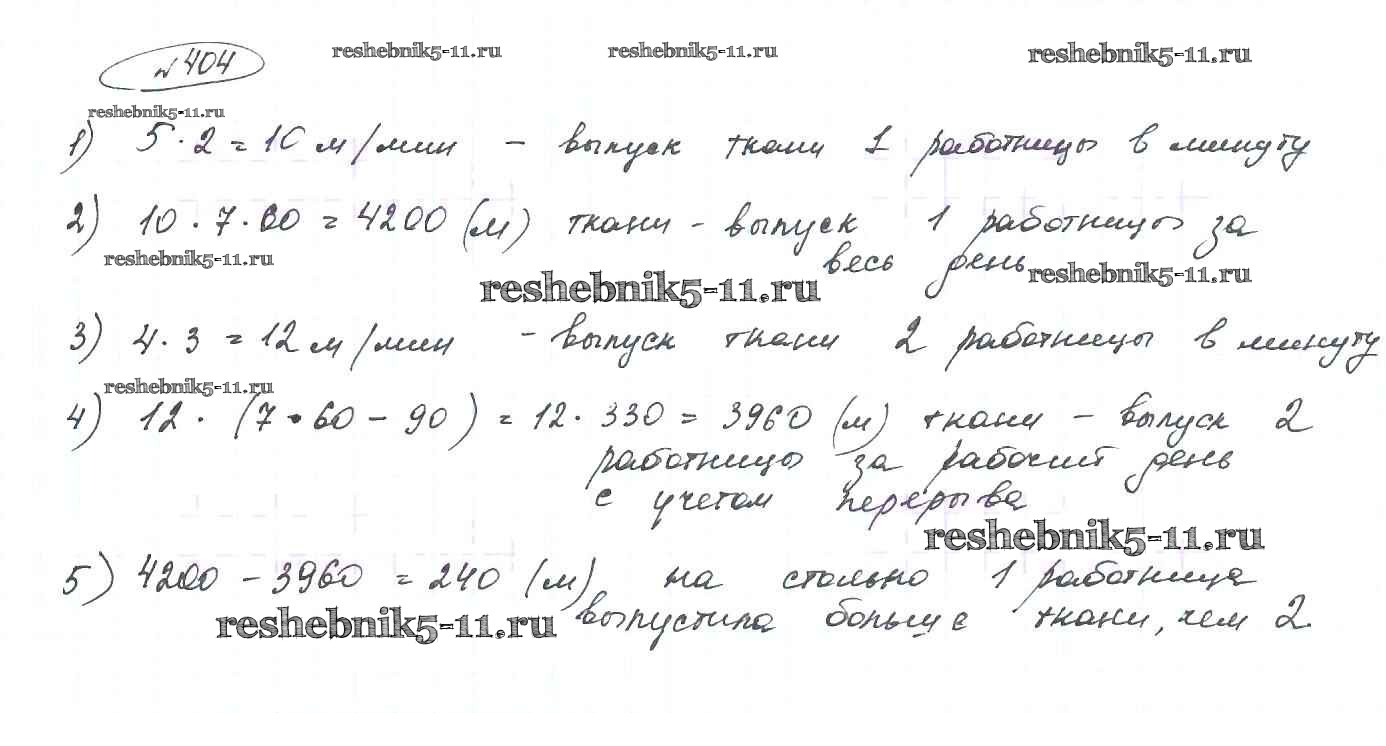 №404
reshebnik5-11.ru reshebnik5-11.ru reshebnik5-11.ru
reshebnik5-11.ru
1) 5·2=10 м/мин – выпуск ткани 1 работницы в минуту
2) 10·7·60=4200 (м) ткани – выпуск 1 работницы за
весь день
reshebnik5-11.ru reshebnik5-11.ru reshebnik5-11.ru
3) 4·3=12 м/мин – выпуск ткани 2 работницы в минуту
reshebnik5-11.ru
4) 12·(7·60-90)=12·330=3960 (м) ткани – выпуск 2
работницы за рабочий день
с учетом перерыва
reshebnik5-11.ru
5) 4200-3960=240 (м) на столько 1 работница
выпустила больше ткани, чем 2.
reshebnik5-11.ru